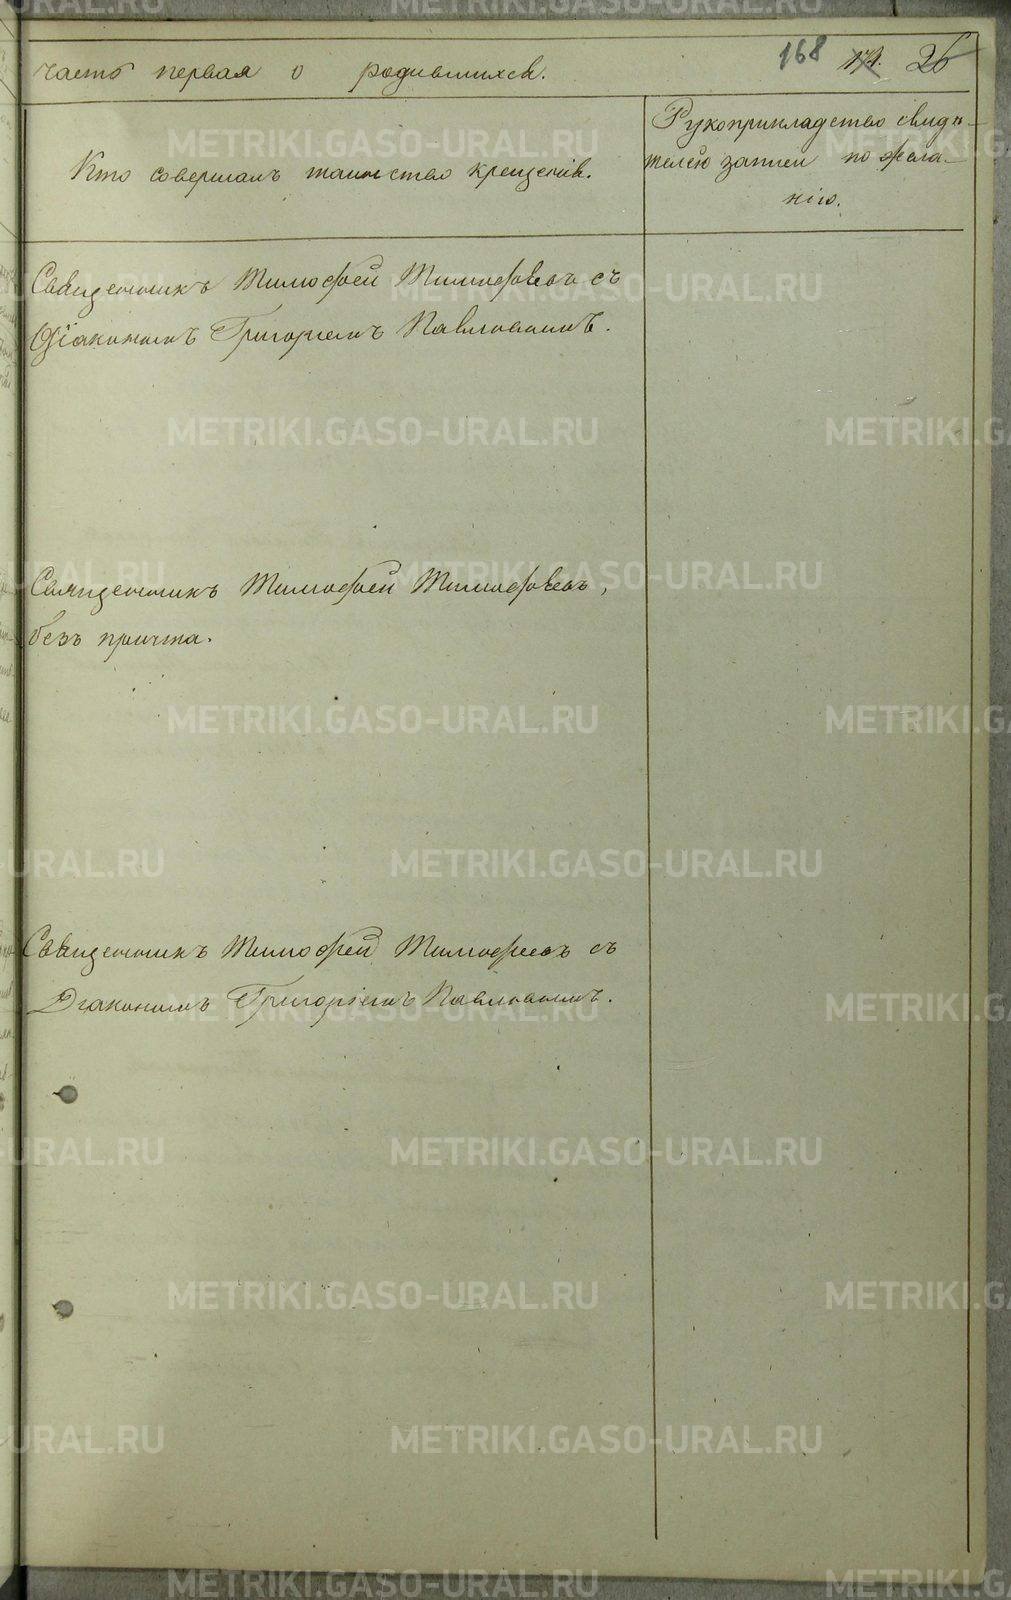 часть первая о родившихся.
168 171. 26
Кто совершалъ таинство крещенія.
Рукоприкладство свидѣ-
телей записи по жела-
нію.
Священникъ Тимофей Тимофѣевъ съ
Діакономъ Григоріемъ Павловымъ.
Священникъ Тимофей Тимофѣевъ,
безъ причта.
Священникъ Тимофей Тимофеевъ съ
Діакономъ Григоріемъ Павловымъ.
METRIKI.GASO-URAL.RU